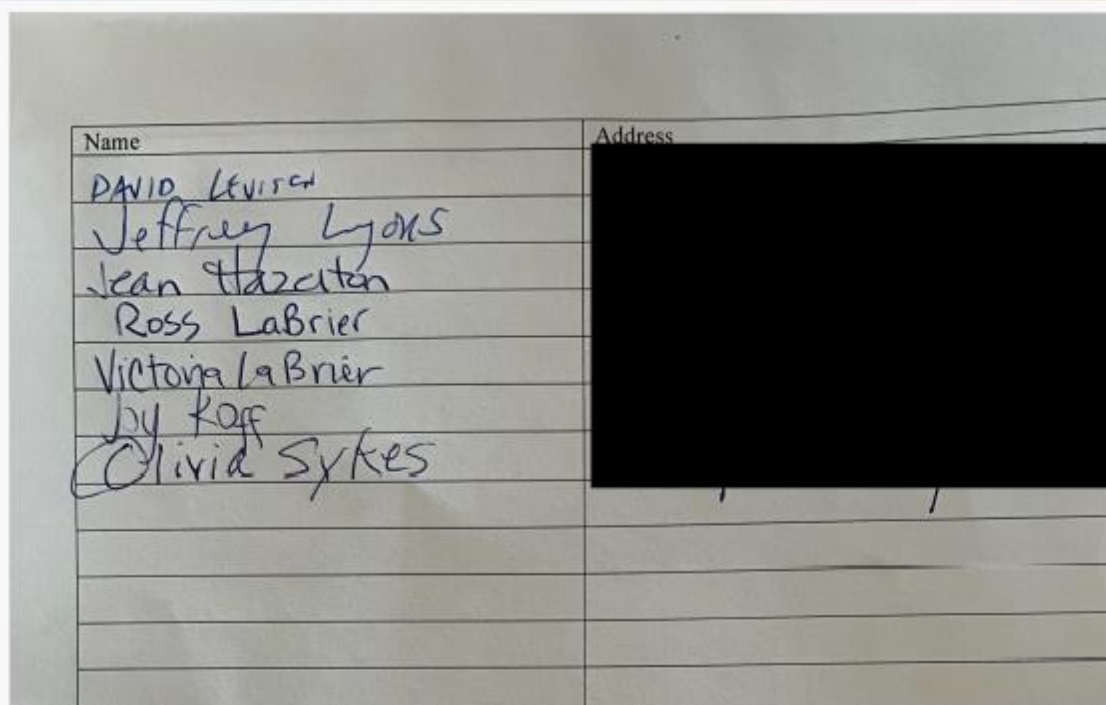 Name Address
DAVID LEVITCH
Jeffrey Lyons
Jean Hazelton
Ross LaBrier
Victoria LaBrier
Joy Koff
Olivia Sykes